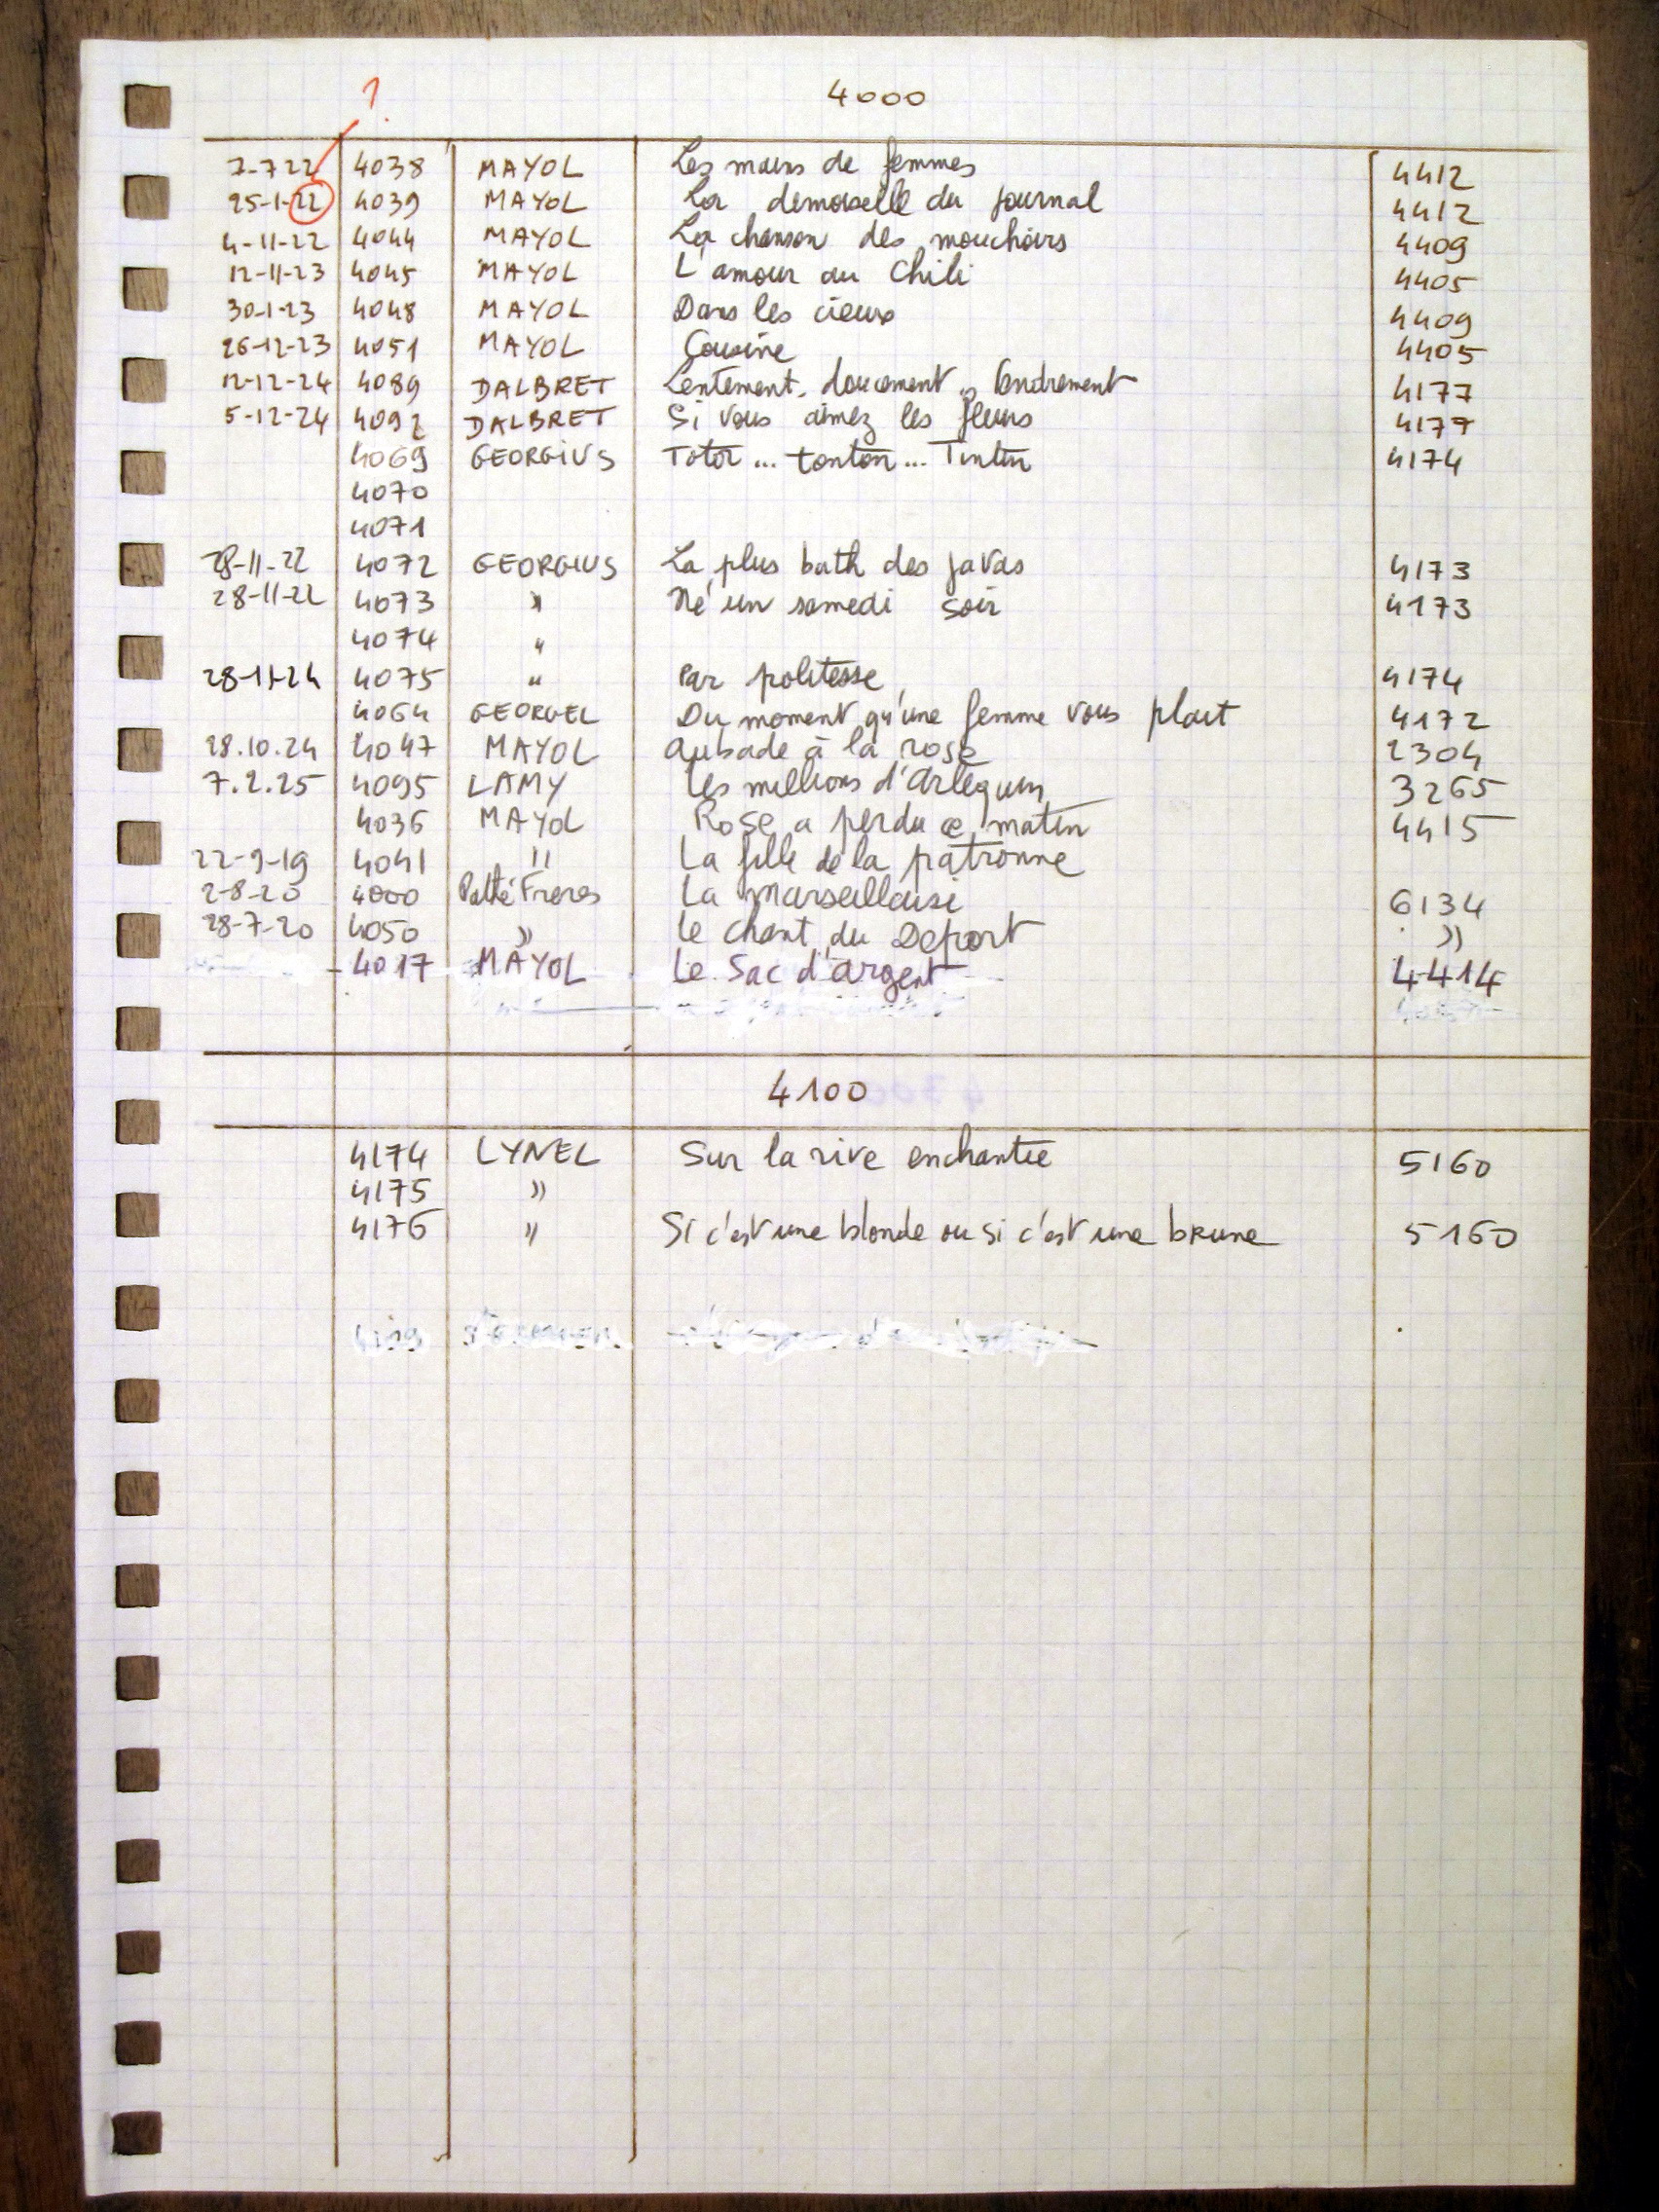 ?
4000
7-7-22 4038 MAYOL Les mains de femmes 4412
25-1-22 4039 MAYOL La demoiselle du journal 4412
4-11-22 4044 MAYOL La chanson des mouchoirs 4409
12-11-23 4045 MAYOL L'amour au Chili 4405
30-1-23 4048 MAYOL Dans les cieux 4409
26-12-23 4051 MAYOL Cousine 4405
12-12-24 4089 DALBRET Lentement, doucement, tendrement 4177
5-12-24 4092 DALBRET Si vous aimez les fleurs 4177
4069 GEORGIUS Totor... tonton... Tintin 4174
4070
4071
28-11-22 4072 GEORGIUS La plus bath des javas 4173
28-11-22 4073 " Né un samedi soir 4173
4074 "
28-11-24 4075 " Par politesse 4174
4064 GEORGEL Du moment qu'une femme vous plait 4172
28.10.24 4047 MAYOL Aubade à la rose 2304
7.2.25 4095 LAMY Les millions d'Arlequin 3265
4036 MAYOL Rose a perdu ce matin 4415
22-9-19 4041 " La fille de la patronne
2-8-20 4000 Pathé Freres La Marseillaise 6134
28-7-20 4050 " Le chant du Depart "
4017 MAYOL Le Sac d'argent 4414
4100
4174 LYNEL Sur la rive enchantée 5160
4175 "
4176 " Si c'est une blonde ou si c'est une brune 5160